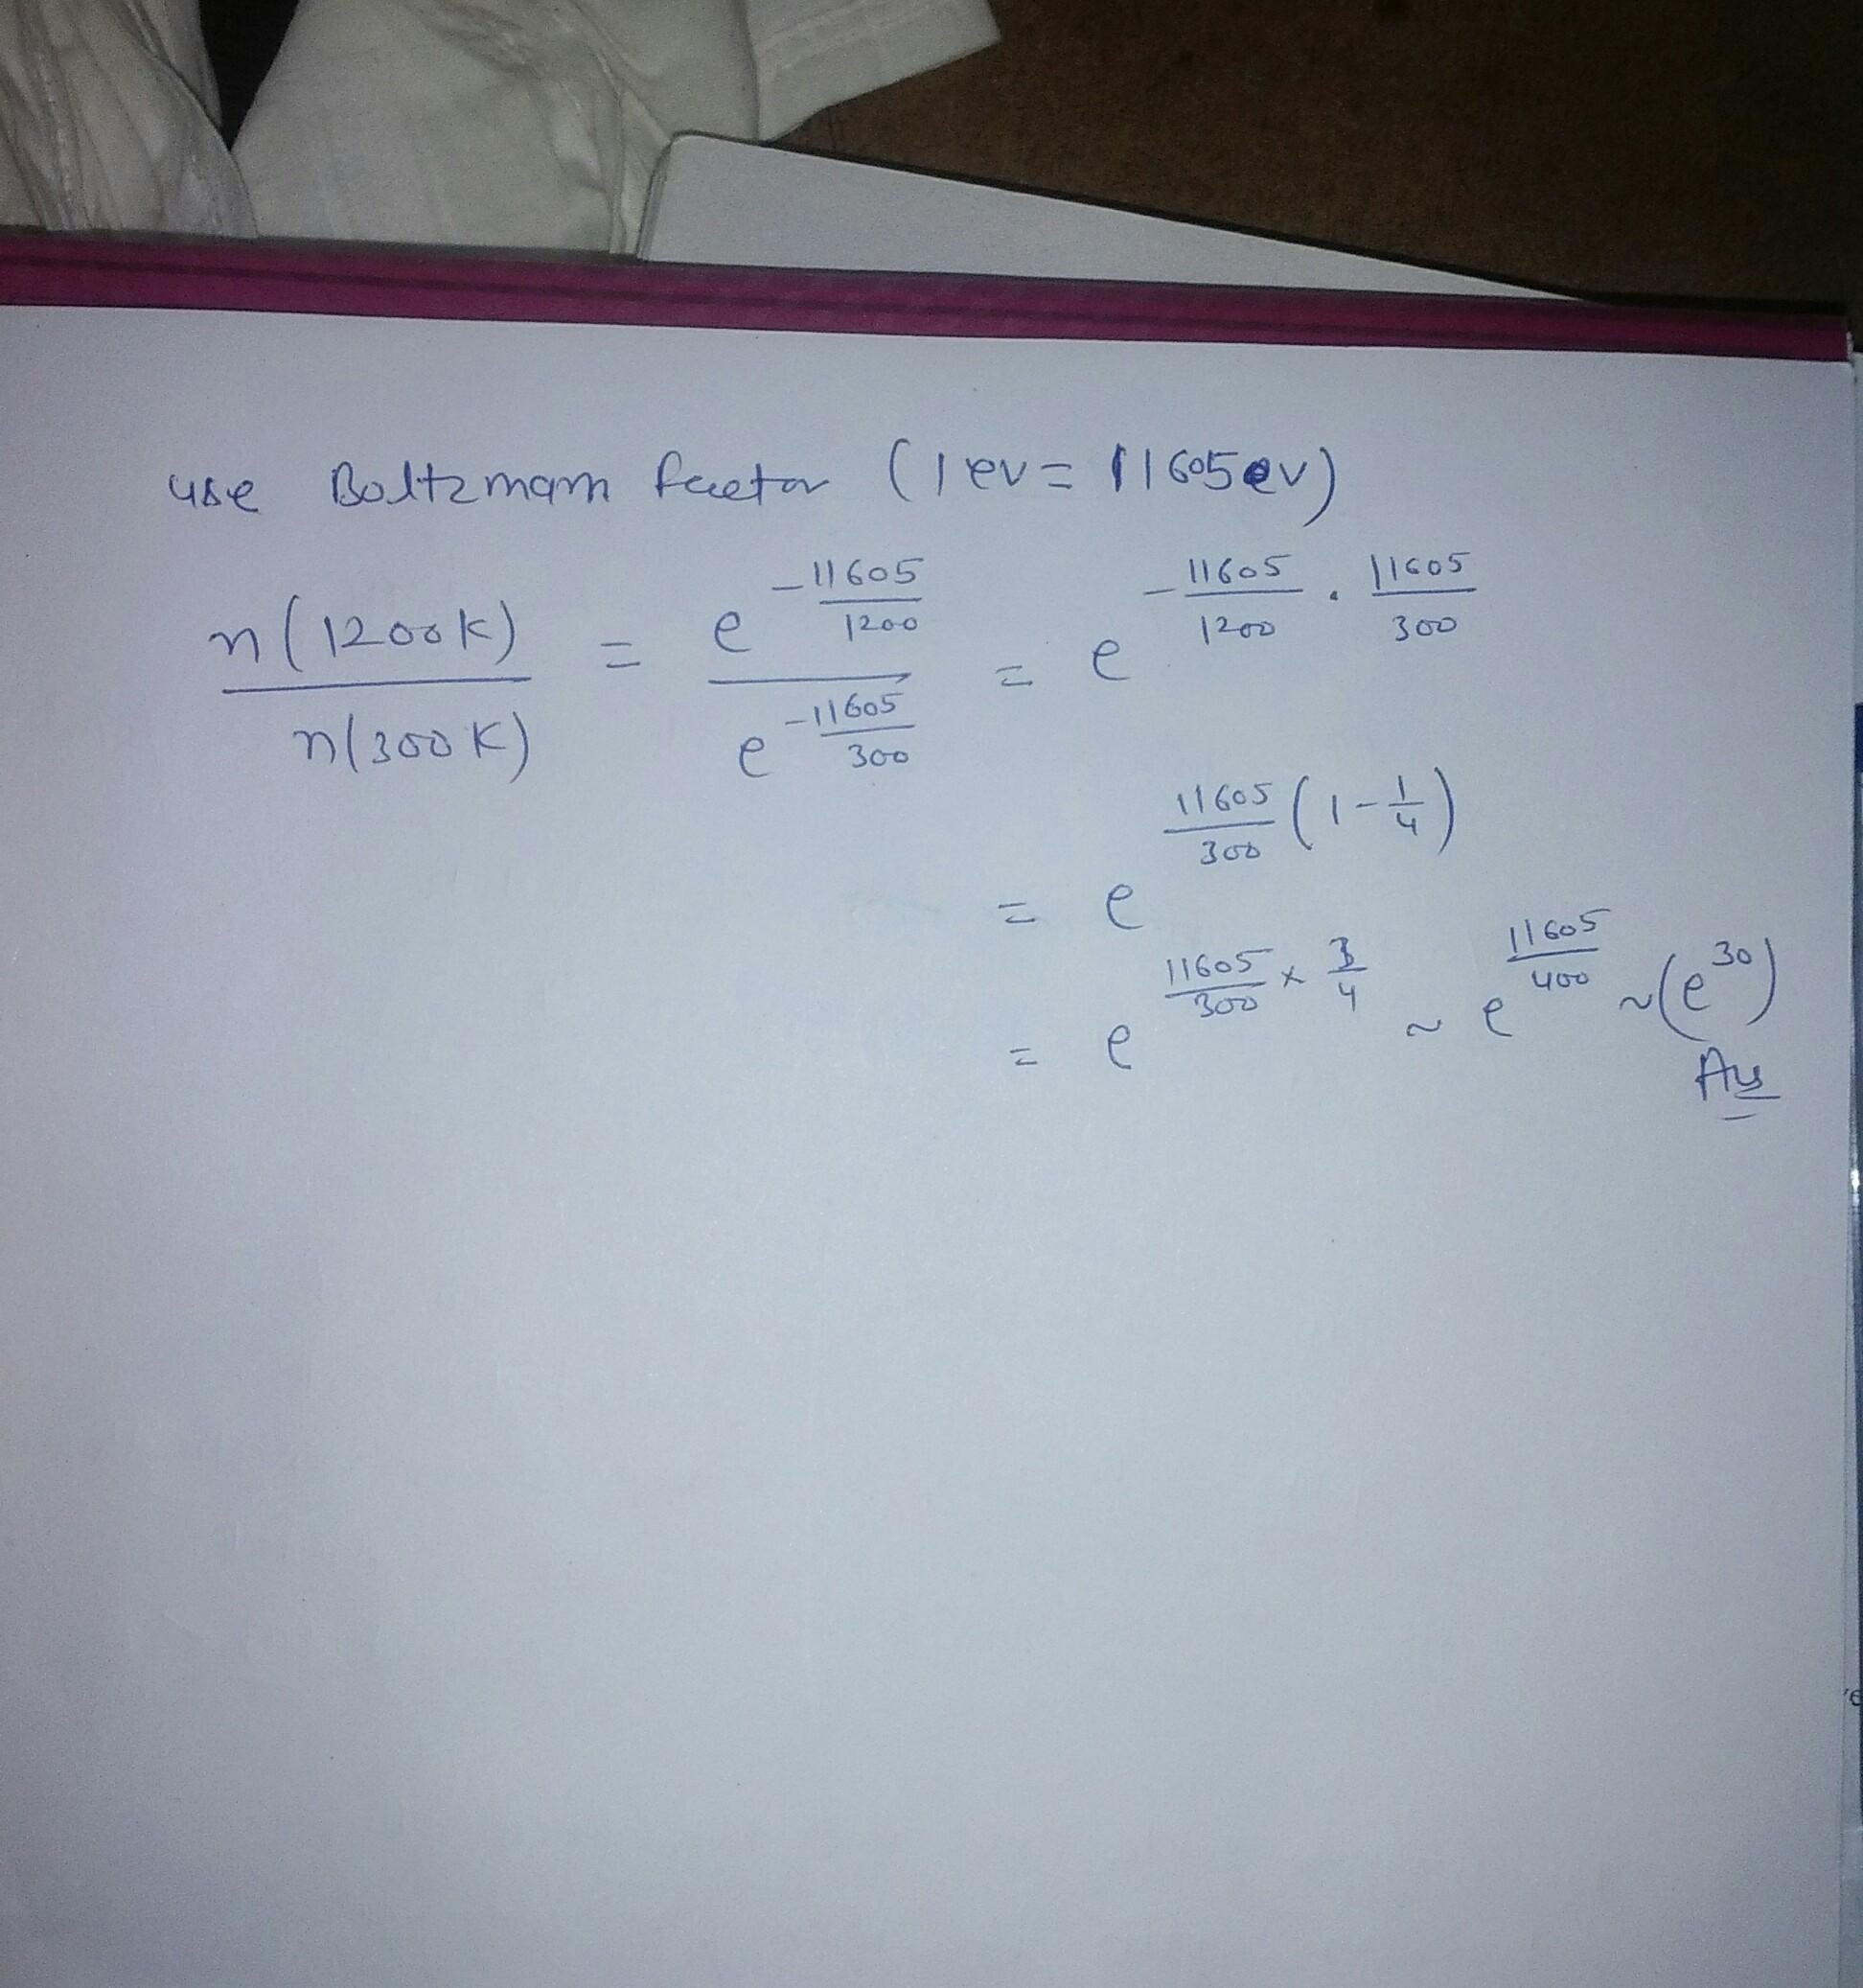 use Boltzmann factor (1 ev = 11605ev)
n(1200K) / n(300K) = e^{-11605/1200} / e^{-11605/300} = e^{-11605/1200 . 11605/300}
= e^{11605/300 (1-1/4)}
= e^{11605/300 × 3/4} ~ e^{11605/400} ~ (e^{30})
Ans